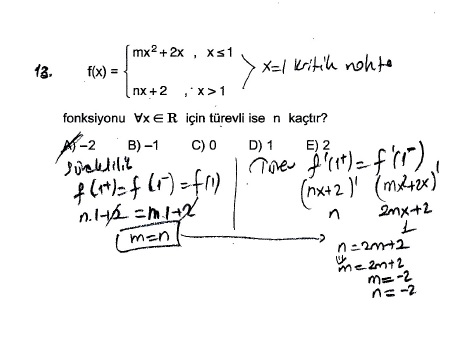 13. f(x) = { mx² + 2x , x ≤ 1
nx + 2 , x > 1
x=1 kritik nokta
fonksiyonu ∀x ∈ R için türevli ise n kaçtır?
A) –2 B) –1 C) 0 D) 1 E) 2
Süreklilik
f(1⁺) = f(1⁻) = f(1)
n.1+2 = m.1+2
m=n
Türev f'(1⁺) = f'(1⁻)
(nx+2)' (mx²+2x)'
n 2mx+2
1
n=2m+2
⇓
m=2m+2
m=-2
n=-2